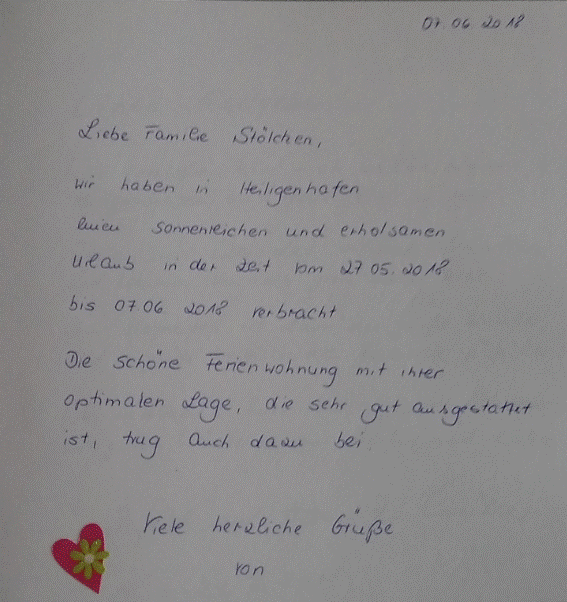 07.06 2018
Liebe Familie Stölchen,
wir haben in Heiligenhafen
einen sonnenreichen und erholsamen
Urlaub in der Zeit vom 27 05. 2018
bis 07.06 2018 verbracht
Die schöne Ferienwohnung mit ihrer
optimalen Lage, die sehr gut ausgestattet
ist, trug auch dazu bei.
Viele herzliche Grüße
von